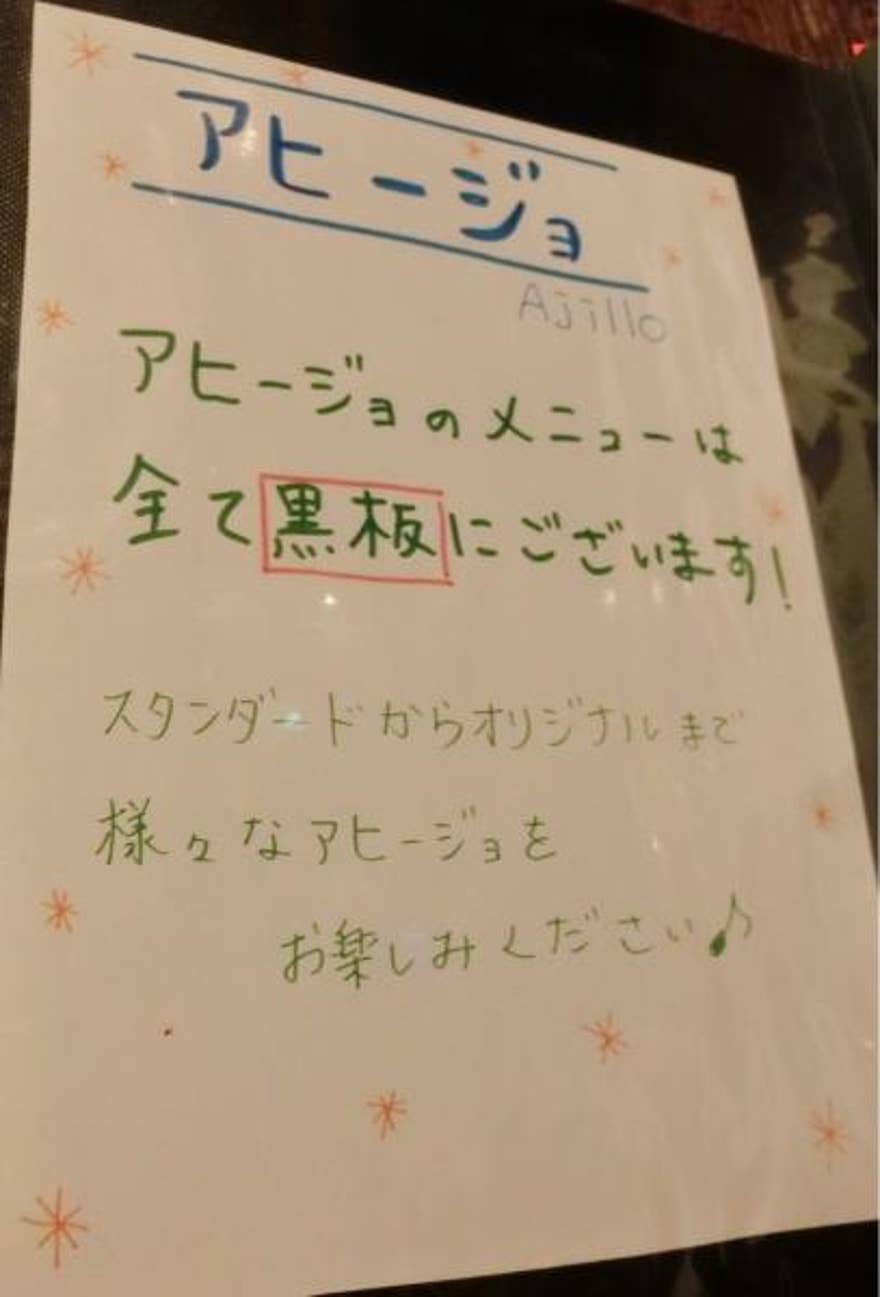 アヒージョ
Ajillo
アヒージョのメニューは
全て黒板にございます!
スタンダードからオリジナルまで
様々なアヒージョを
お楽しみください♪